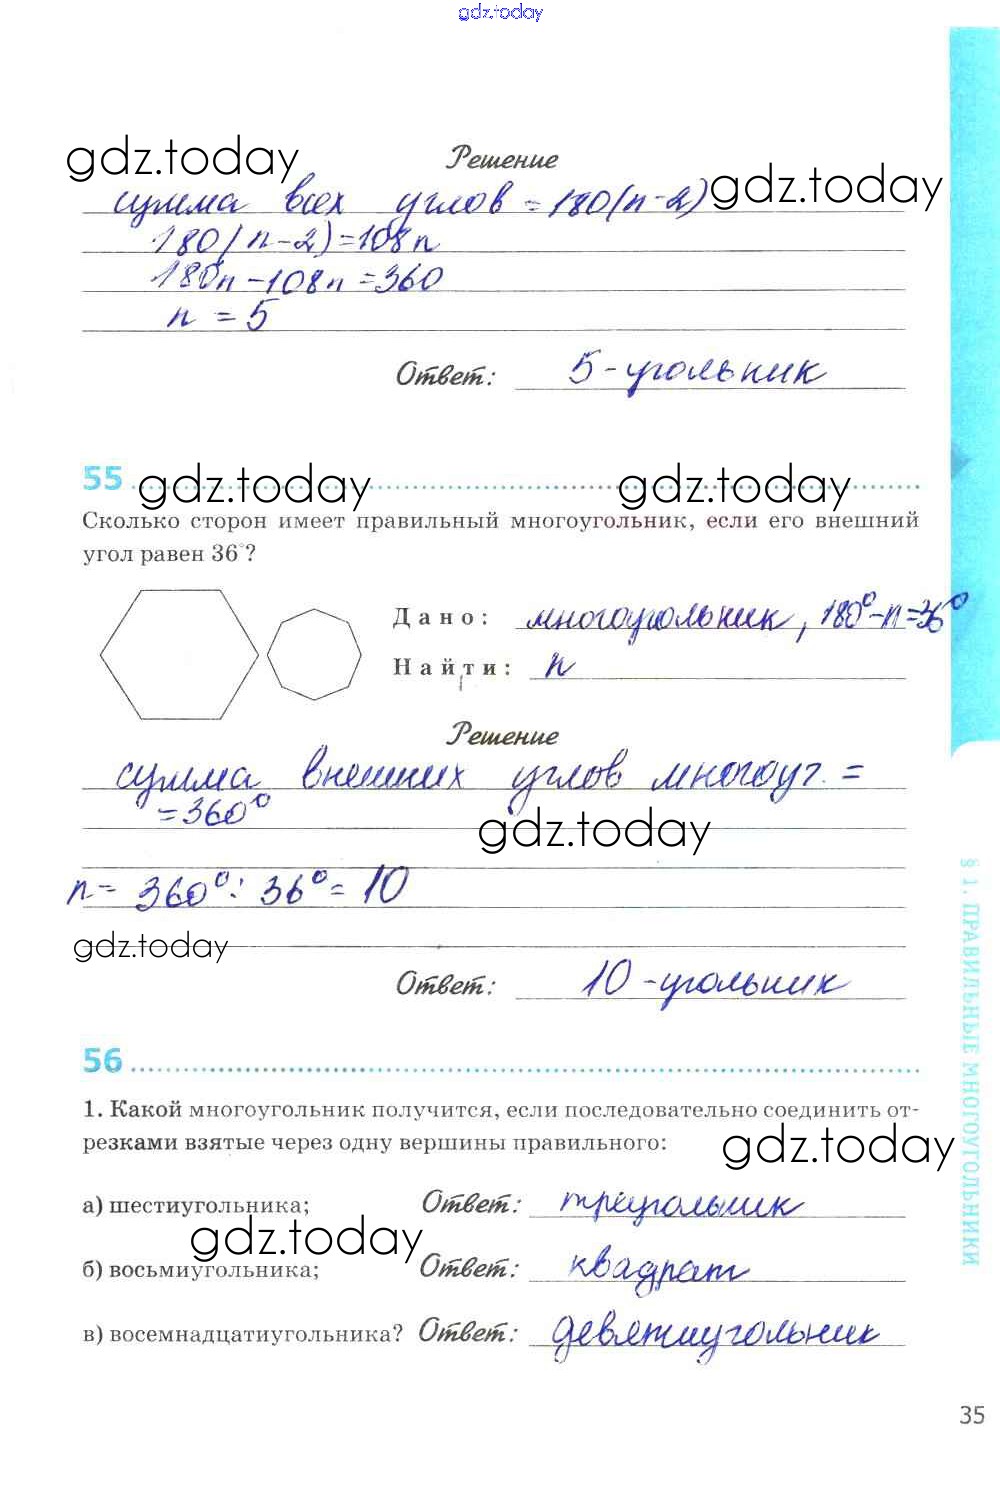 gdz.today
Решение
gdz.today
gdz.today
сумма всех углов = 180(n-2)
180(n-2)=108n
180n-108n=360
n = 5
Ответ: 5-угольник
55
gdz.today gdz.today
Сколько сторон имеет правильный многоугольник, если его внешний
угол равен 36°?
Дано: многоугольник, 180°-n=36°
Найти: n
Решение
сумма внешних углов многоуг. =
=360°
gdz.today
n= 360°: 36°= 10
gdz.today
Ответ: 10-угольник
56
1. Какой многоугольник получится, если последовательно соединить от-
резками взятые через одну вершины правильного:
gdz.today
а) шестиугольника; Ответ: треугольник
gdz.today
б) восьмиугольника; Ответ: квадрат
в) восемнадцатиугольника? Ответ: девятиугольник
§ 1. ПРАВИЛЬНЫЕ МНОГОУГОЛЬНИКИ
35